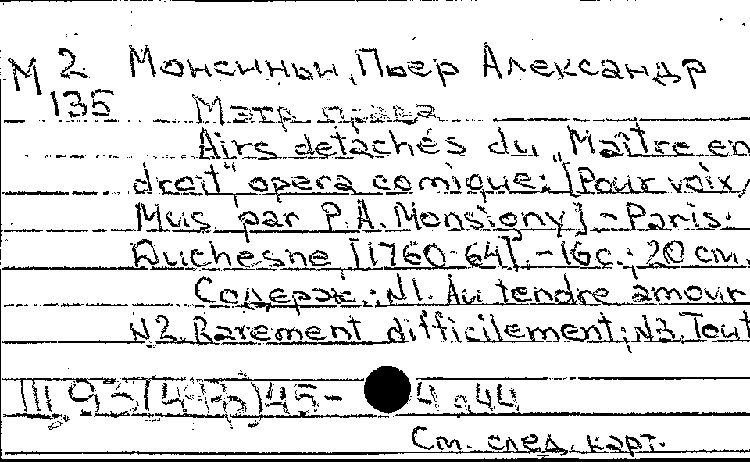 М 2 Монсиньи, Пьер Александр
135 Мэтр права
Airs detachés du „Maître en
droit“ opera comique: [Pour voix,
Mus par P.A. Monsigny] - Paris.
Duchesne [1760-64]. - 16 с.; 20 см.
Содерж.: N1. Au tendre amour
N2. Rarement difficilement; N3. Tout
III, 93(4Фр)45- 4.44
См. след. карт.